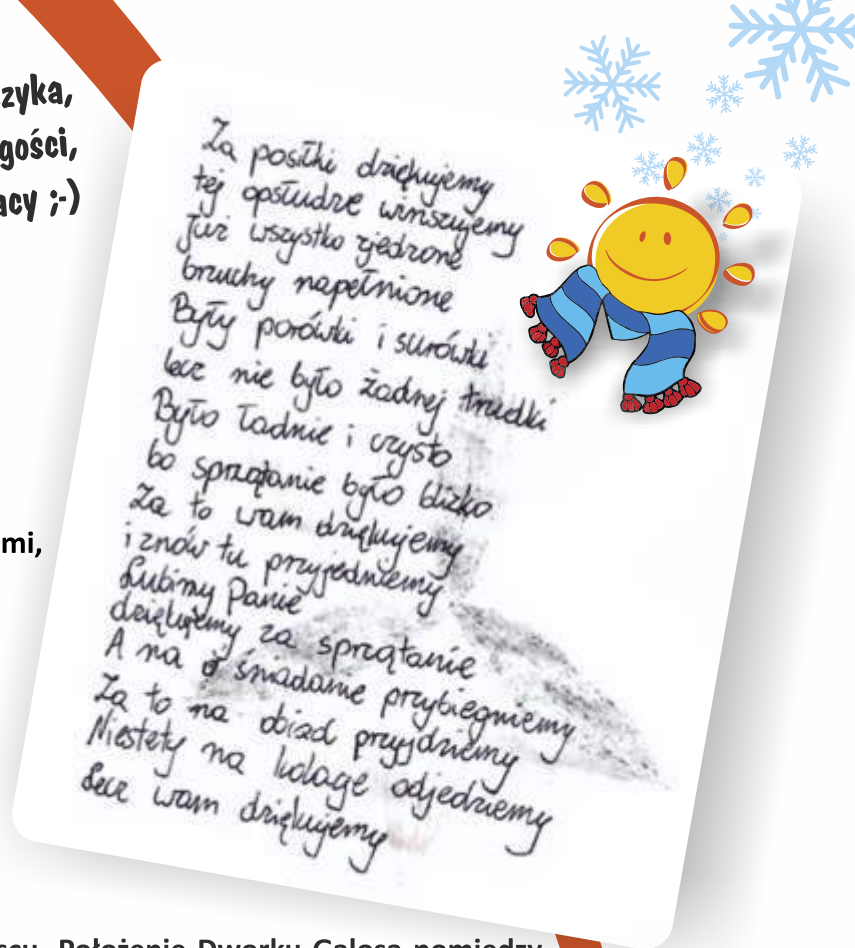 zyka,
gości,
acy ;-)
mi,
Za posiłki dziękujemy
tej opsłudze winszujemy
Już wszystko zjedzone
brzuchy napełnione
Były porówki i surówki
lecz nie było żadnej trudki
Było ładnie i czysto
bo sprzątanie było blizko
Za to wam dziękujemy
i znów tu przyjedniemy
Lubimy Panie
dziękujemy za sprzątanie
A na śniadanie przybiegniemy
Za to na obiad przyjdziemy
Niestety na kolage odjedziemy
Lecz wam dziękujemy
Położenie Dworku Galosa pomiędzy